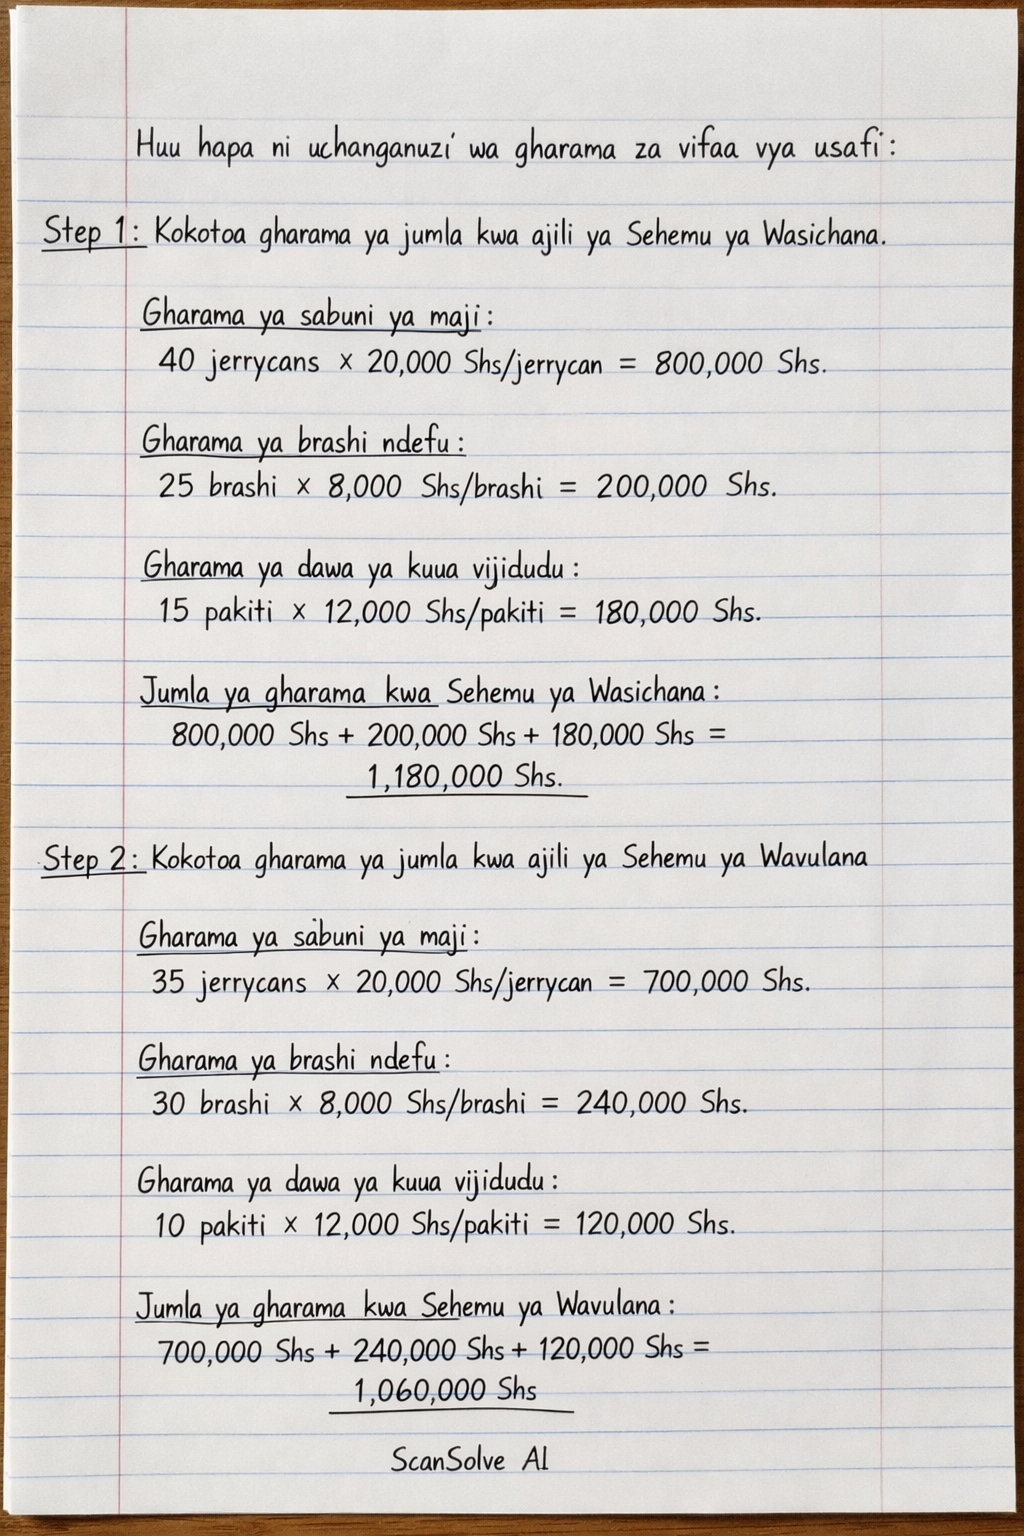 Huu hapa ni uchanganuzi wa gharama za vifaa vya usafi:
Step 1: Kokotoa gharama ya jumla kwa ajili ya Sehemu ya Wasichana.
Gharama ya sabuni ya maji:
40 jerrycans × 20,000 Shs/jerrycan = 800,000 Shs.
Gharama ya brashi ndefu:
25 brashi × 8,000 Shs/brashi = 200,000 Shs.
Gharama ya dawa ya kuua vijidudu:
15 pakiti × 12,000 Shs/pakiti = 180,000 Shs.
Jumla ya gharama kwa Sehemu ya Wasichana:
800,000 Shs + 200,000 Shs + 180,000 Shs =
1,180,000 Shs.
Step 2: Kokotoa gharama ya jumla kwa ajili ya Sehemu ya Wavulana
Gharama ya sabuni ya maji:
35 jerrycans × 20,000 Shs/jerrycan = 700,000 Shs.
Gharama ya brashi ndefu:
30 brashi × 8,000 Shs/brashi = 240,000 Shs.
Gharama ya dawa ya kuua vijidudu:
10 pakiti × 12,000 Shs/pakiti = 120,000 Shs.
Jumla ya gharama kwa Sehemu ya Wavulana:
700,000 Shs + 240,000 Shs + 120,000 Shs =
1,060,000 Shs
ScanSolve AI